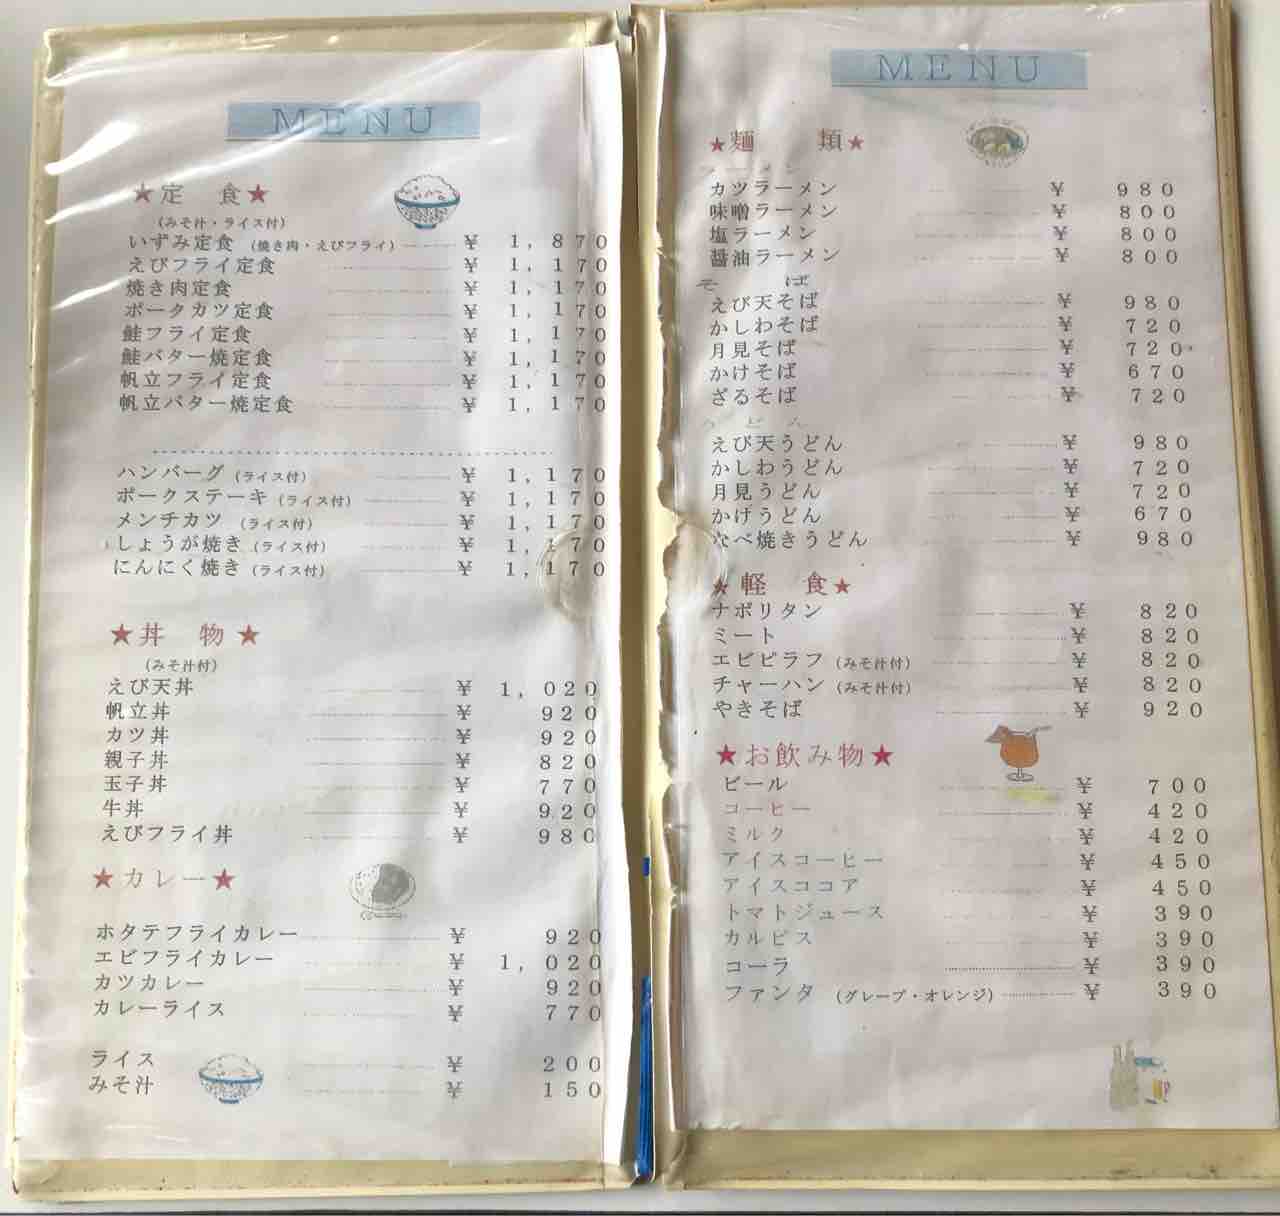 MENU
★定 食★
(みそ汁・ライス付)
いずみ定食 (焼き肉・えびフライ) ¥ 1,870
えびフライ定食 ¥ 1,170
焼き肉定食 ¥ 1,170
ポータカツ定食 ¥ 1,170
鮭フライ定食 ¥ 1,170
鮭バター焼定食 ¥ 1,170
帆立フライ定食 ¥ 1,170
帆立バター焼定食 ¥ 1,170
ハンバーグ (ライス付) ¥ 1,170
ポークステーキ (ライス付) ¥ 1,170
メンチカツ (ライス付) ¥ 1,170
しょうが焼き (ライス付) ¥ 1,170
にんにく焼き (ライス付) ¥ 1,170
★丼 物★
(みそ汁付)
えび天丼 ¥ 1,020
帆立丼 ¥ 920
カツ丼 ¥ 920
親子丼 ¥ 820
玉子丼 ¥ 770
牛丼 ¥ 920
えびフライ丼 ¥ 980
★カレー★
ホタテフライカレー ¥ 920
エビフライカレー ¥ 1,020
カツカレー ¥ 920
カレーライス ¥ 770
ライス ¥ 200
みそ汁 ¥ 150
MENU
★麺 類★
ラーメン
カツラーメン ¥ 980
味噌ラーメン ¥ 800
塩ラーメン ¥ 800
醤油ラーメン ¥ 800
そ ば
えび天そば ¥ 980
かしわそば ¥ 720
月見そば ¥ 720
かけそば ¥ 670
ざるそば ¥ 720
うどん
えび天うどん ¥ 980
かしわうどん ¥ 720
月見うどん ¥ 720
かげうどん ¥ 670
なべ焼きうどん ¥ 980
★軽 食★
ナポリタン ¥ 820
ミート ¥ 820
エビピラフ (みそ汁付) ¥ 820
チャーハン (みそ汁付) ¥ 820
やきそば ¥ 920
★お飲み物★
ビール ¥ 700
コーヒー ¥ 420
ミルク ¥ 420
アイスコーヒー ¥ 450
アイスココア ¥ 450
トマトジュース ¥ 390
カルピス ¥ 390
コーラ ¥ 390
ファンタ (グレープ・オレンジ) ¥ 390